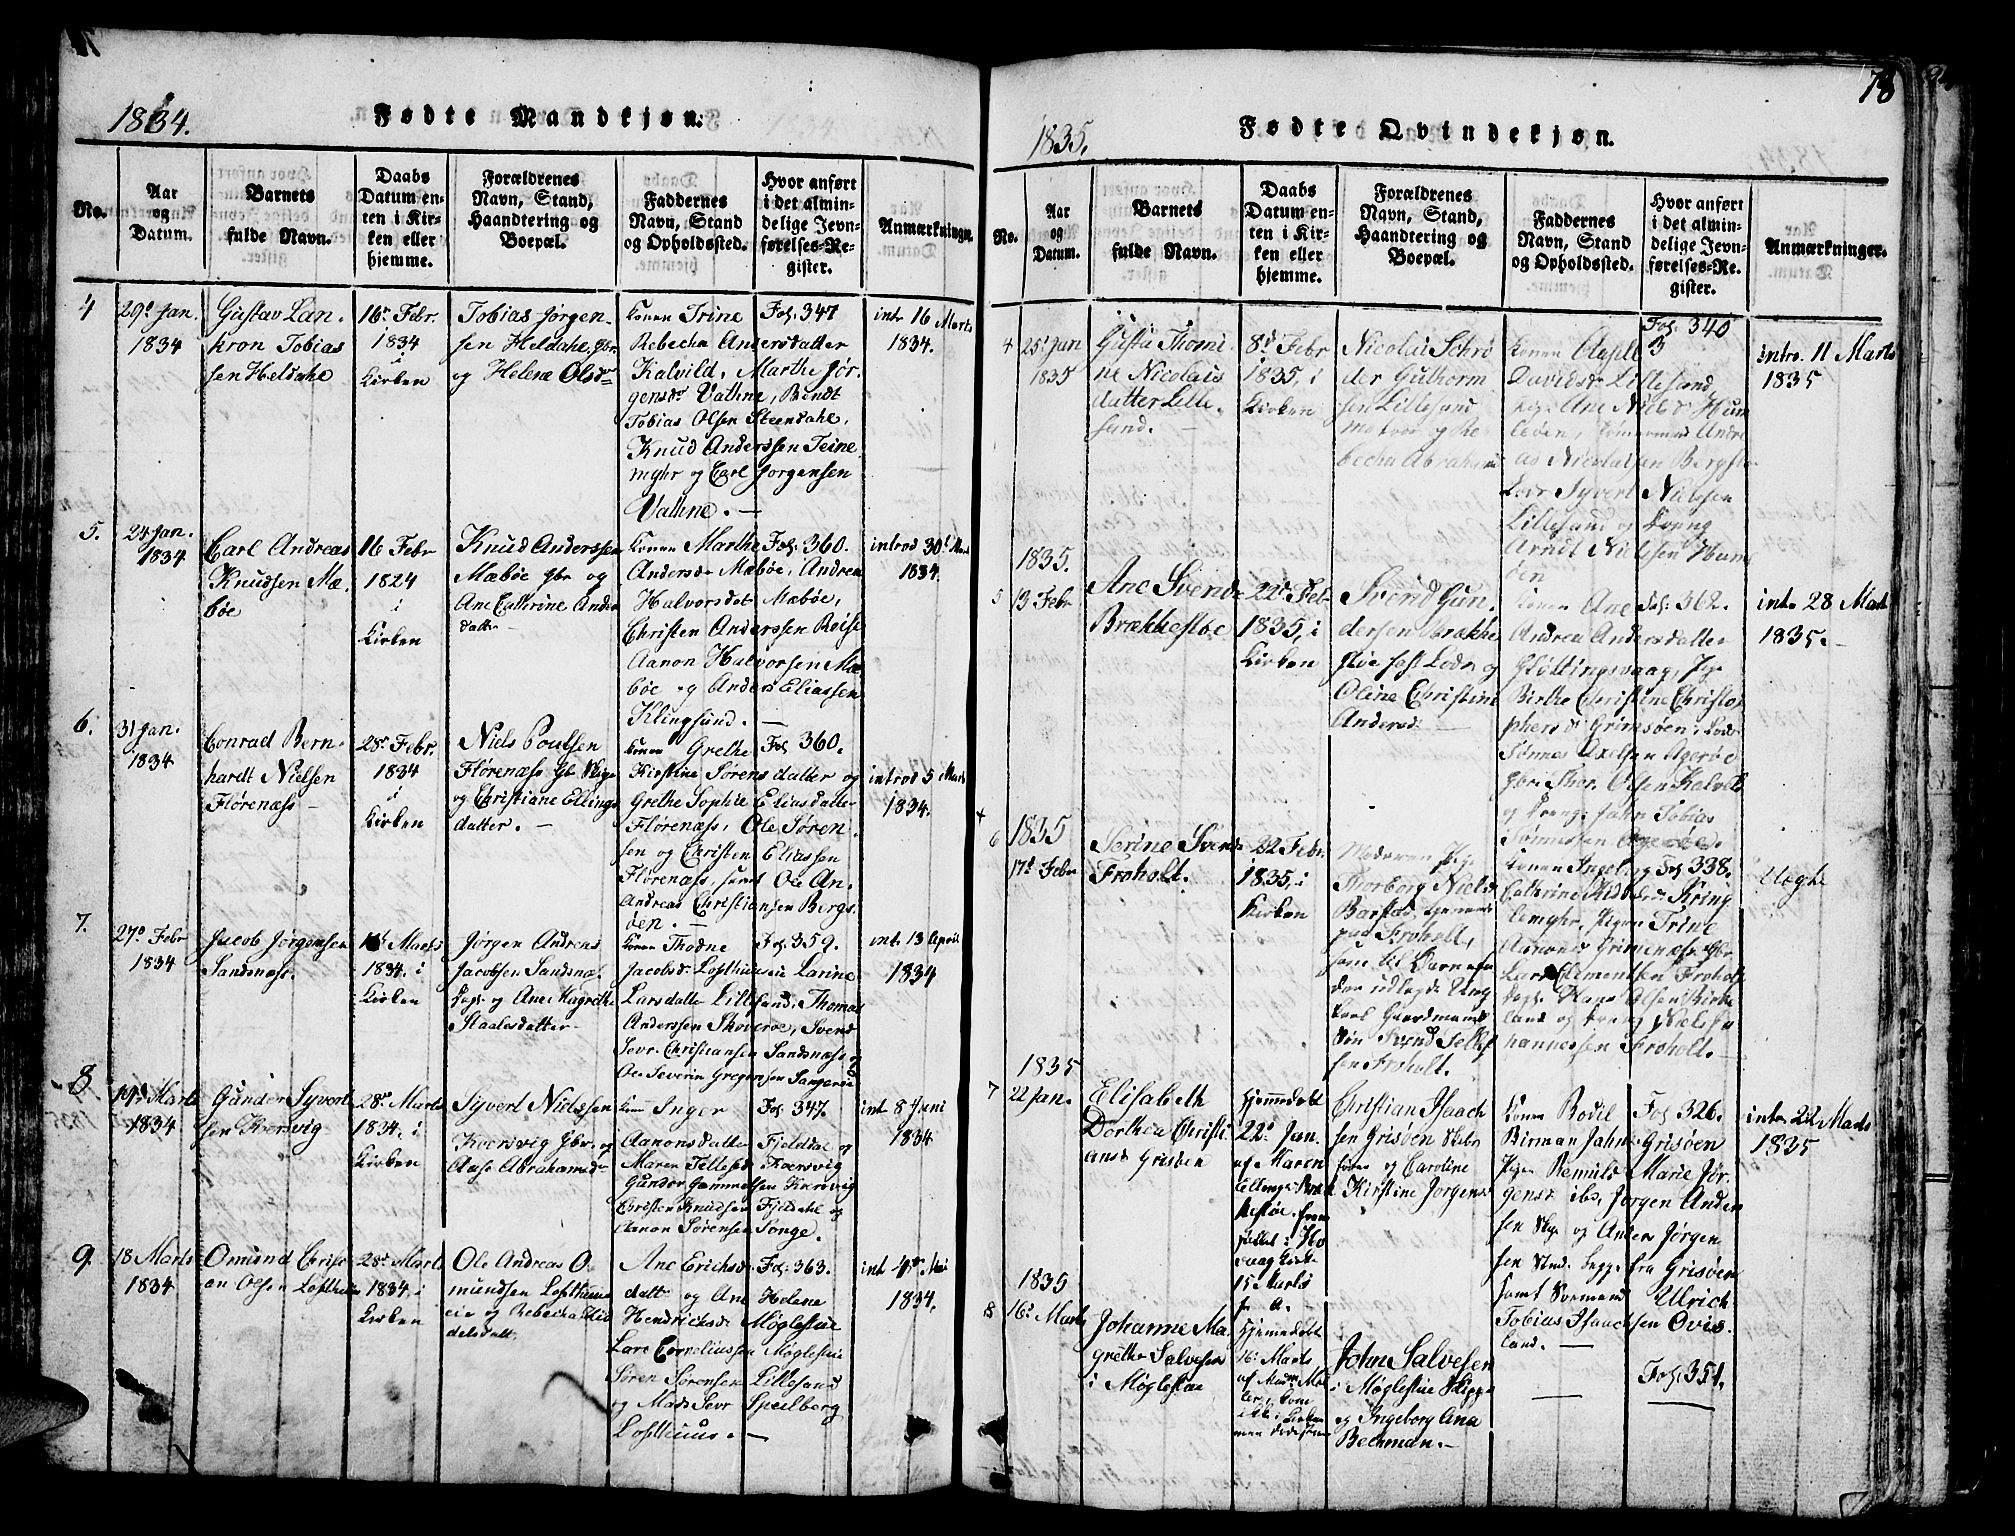 78
1834.
Fødte Mandkjøn.
No.
Aar
og
Datum.
Barnets
fulde Navn.
Daabs
Datum en-
ten i Kir-
ken eller
hjemme.
Forældrenes
Navn, Stand,
Haandtering og
Boepæl.
Faddernes
Navn, Stand
og Opholdssted.
Hvor anført
i det almin-
delige Jevn-
førelses-Re-
gister.
Anmærkninger.
4
29d Jan.
1834
Gustav Lan-
kron Tobias
sen Heldahl
16d Febr.
1834
i
Kirken
Tobias Jørgen-
sen Heldahl, Gbr.
og Helene Olsdr
Konen Trine
Rebecha Andersdatter
Kalvild, Marthe Jør-
gensdr Vathne, Bendt
Tobias Olsen Steendahl,
Knud Anderssen Teine
myhr og Carl Jørgensen
Vathne. —
Fol: 347
int. 16 Marts
1834.
5.
24 Jan.
1834
Carl Andreas
Knudsen Mæ-
bøe
16 Febr
1824
i
Kirken
Knud Anderssen
Mæbøe Gbr og
Ane Cathrine Ander
datter
Konen Marthe
Andersdr Mæbøe, Andrea
Halvorsdat Mæbøe,
Christen Anderssen Roise
Aanon Halvorsen Mæ-
bøe og Anders Eliassen
Klingsund. —
Fol: 360.
introd 30d Mart
1834.
6.
31 Jan.
1834
Conrad Bern-
hardt Nielsen
Flørenæss —
28d Febr.
1834
i
Kirken
Niels Poulsen
Flørenæss Gbr
og Christiane Ellings
datter. —
Konen Grethe
Kirstine Sørensdatter og
Grethe Sophie Eliasdatter
Flørenæss, Ole Søren-
sen og Christen Eliassen
Flørenæss, samt Ole An-
dreas Christiansen Bergs-
øen. —
Fol 360.
introd 5 Marts
1834.
7.
27d Febr
1834
Jacob Jørgensen
Sandsnæss.
Marts
1834, i
Kirken
Jørgen Andreas
Jacobsen Sandsnæs
og Ane Magrethe
Staalesdatter
Konen Thorne
Jacobsdr Lofthuseie Larine
Larsdatter Lillesand, Thomas
Anderssen Skoverøe, Svend
Sevr. Christiansen Sandsnæss og
Ole Severin Gregersen Sangerøe
Fol: 359.
int. 13 April
1834
8
19d Marts
1834
Gunder Syvert
sen Kersvig
28d Marts
1834, i
Kirken
Syvert Nielssen
Koersvig Gbr. og
Aase Abrahamsdr
Konen Inger
Aanonsdatter Fjeldal og
Maren Tellefsdr Koersvig
Gunder Gammelsen Kersvig
Christen Knudsen Fjeldahl og
Aanon Sørensen Songe.
Fol: 347.
int 8 Juni
1834
9.
18 Marts
1834
Omund Christi
an Olsen Lofthuus
28d Mart
1834, i
Kirken
Ole Andreas O
mundsen Lofthuus
eie og Rebecha
delsdatt.
Ane Erichsdr
datt og Ane Helene
Hendrichsdr Møglestue
Lars Corneliussen Møglestue
Søren Sørensen Lillesand
og Mads Sevr Speilberg
Lofthuus. —
Fol: 363.
int Mai
1834.
1835.
Fødte Qvindekjøn.
No.
Aar
og
Datum.
Barnets
fulde Navn.
Daabs
Datum en-
ten i Kir-
ken eller
hjemme.
Forældrenes
Navn, Stand,
Haandtering og
Boepæl.
Faddernes
Navn, Stand
og Opholdssted.
Hvor anført
i det almin-
delige Jevn-
førelses-Re-
gister.
Anmærkninger.
4
25d Jan
1835
Gusta Thomi
ne Nicolais
datter Lille-
sand. —
8d Febr
1835, i
Kirken
Nicolai Schrø
der Guthorm
sen Lillesand
Matros og Re
becha Abrahams
Konen Aasell
Davidsdr Lillesand,
Pige Ane Nielsdr Hum
leøen, Tømermand Andre
as Nicolaisen Bergstø
Lods Syvert Nielssen
Lillesand og Dreng
Arndt Nielsen Hum
øen
Fol: 340
3
intro. 11 Marts
1835
1835.
5
13 Febr
Ane Svends
Brækkestøe
22d Feb
1835, i
Kirken
Svend Gun-
dersen Brække
støe fast Lods og
Oline Christine
Andersd.
Konen Ane
Andrea Andersdatter
Gløttingsvaag, Pige
Birthe Christine Christo
phersdr Grimsøen, Lods
Tønnes Axelsen Agerøe
Gbr. Thor Olsen Kalvild
og Dreng Jahn Tobias
Tønnessen Agerøe.
Fol: 362.
int. 28 Mart
1835. —
+
6
1835
17d Febr
Serine Svends
Froholt.
22 Febr.
1835, i
Kirken
Moderen Pige
Thorborg Nielsdr
Barstad, tjenende
paa Froholt,
som til Barnefa
der udlagde Ung
karl Gaardmands
Søn Svend Tellef
sen Froholt.
Konen Ingeb
Cathrine Kring
lemyhr, Pigen Trine
Aanonsdr Grimenæss Gbr.
Lars Clementsen Froholt
Hans Olsen Birke
land og Dreng Niels Jo
hannessen Froholt. —
Fol 338.
Uægte
1835
7
22 Jan.
Elisabeth
Dorthea Christi
ansd Grisøen
Hjemmedøbt
22d Jan.
af Karen
Ellings Bræk
kestøe, frem
stillet i Hø
vaag Kirke
15 Marts
s. A.
Christian Isaach
sen Grisøen
og Caroline
Kirstine Jørgens
Konen Bodil
Birman Jahns Grisøen
Pige Romuld Marie Jør-
gensdr ibd, Jørgen Ander
sen og Anders Jørgen
sen begge fra Grisøen
samt Sørmand Ulrich
Tobias Isaachsen Ovis-
land. —
Fol 326.
int. 22 Marts
1835
1835
8
16d Marts
Johanne Ma
grethe Salvesen
i Møglestue
Hjemmedøbt
16 Marts
John Salvesen
i Møglestue Skipper
og Ingeborg Ana
Bechman. —
Fol. 351.